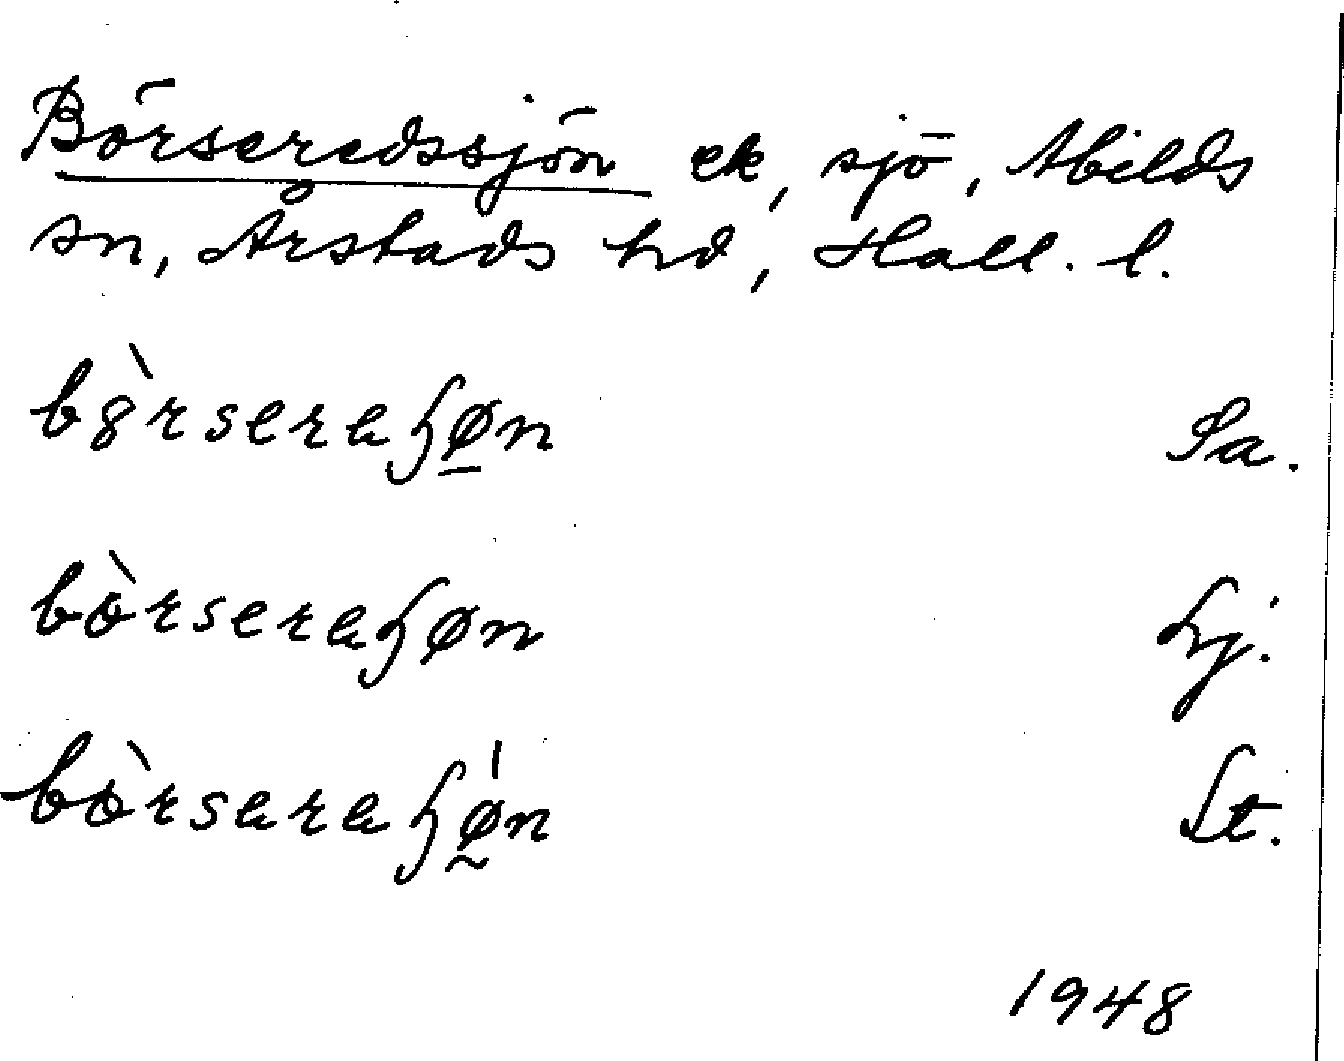 Börseredssjön ek, sjö, Abilds
sn, Årstads hd, Hall. l.
bȣ̀rserɐɧø̲n Sa.
bòrserɐɧøn hj.
bòrsɐrɐɧǿ̰n St.
1948